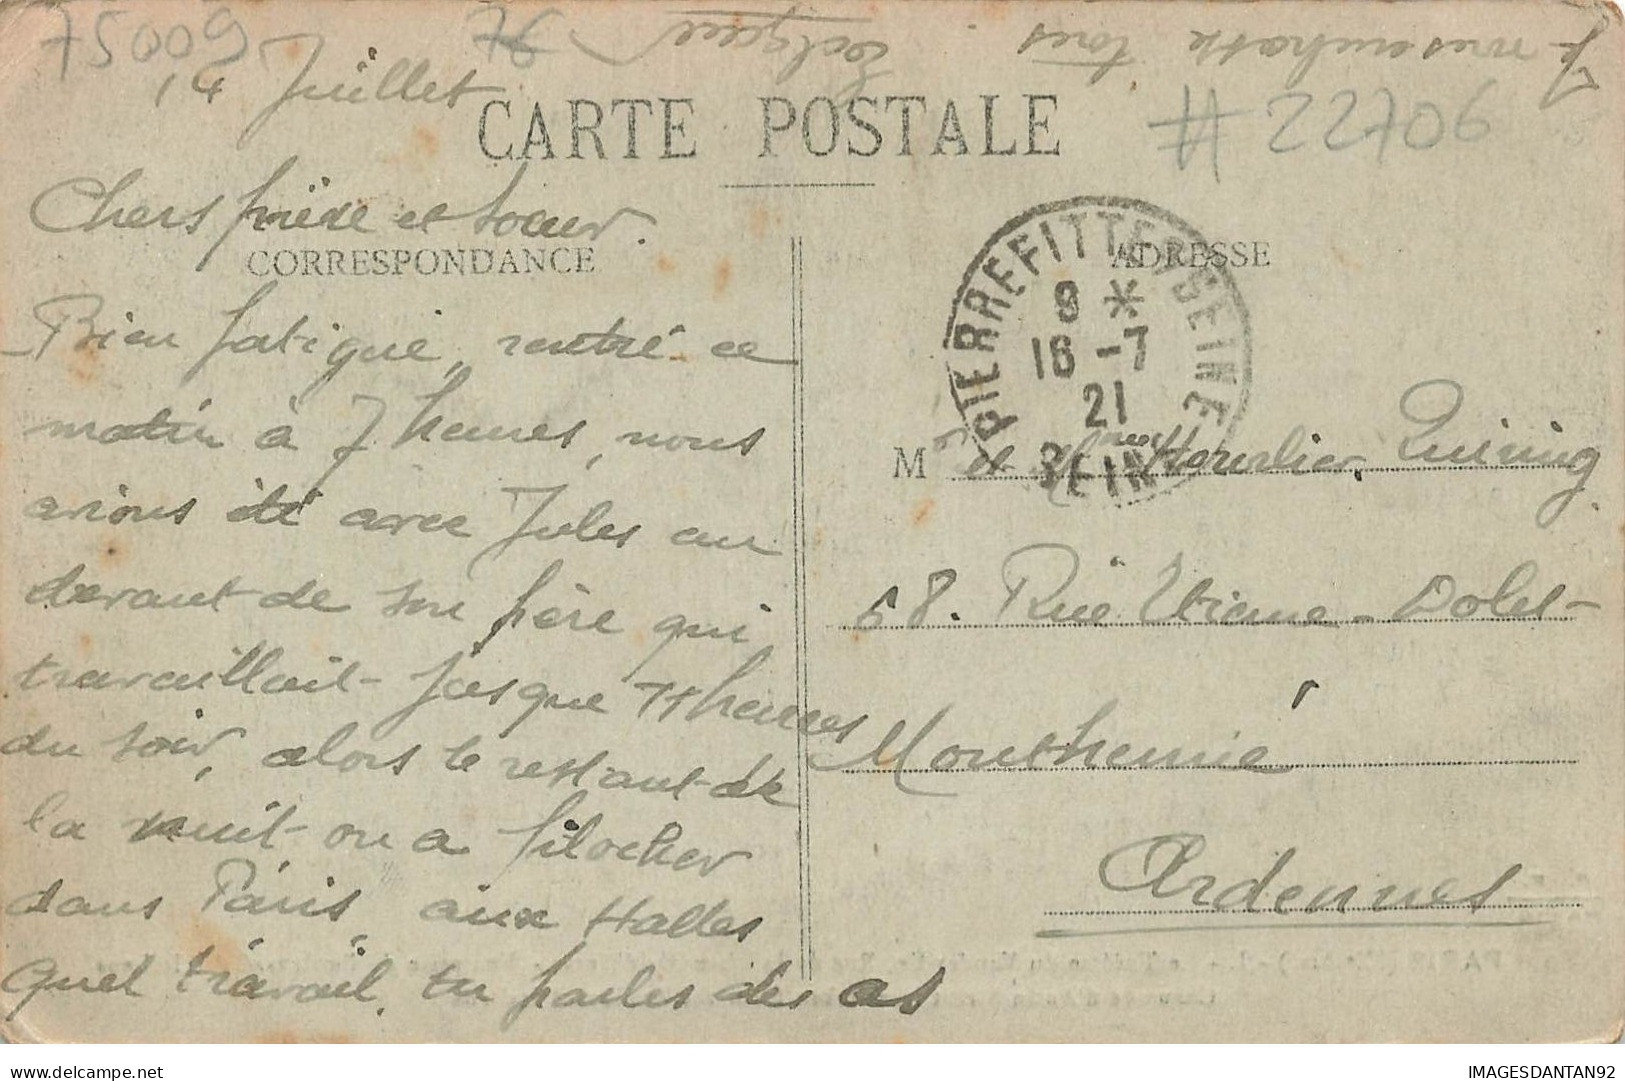 75009
76
Je vous embrasse tous.
14 Juillet
CARTE POSTALE
# 22706
Chers frère et sœur.
CORRESPONDANCE
ADRESSE
Bien fatigué, rentré ce
matin à 7 heures, nous
avions été avec Jules au
devant de son père qui
travaillait jusque 11 heures
du soir, alors le restant de
la nuit on a filocher
dans Paris, aux Halles
quel travail, tu parles des as
PIERREFITTE-S-SEINE
8 *
16 -7
21
SEINE
M et Hourlier
68. Rue Etienne-Dolet
Monthermé
Ardennes
IMAGESDANTAN92